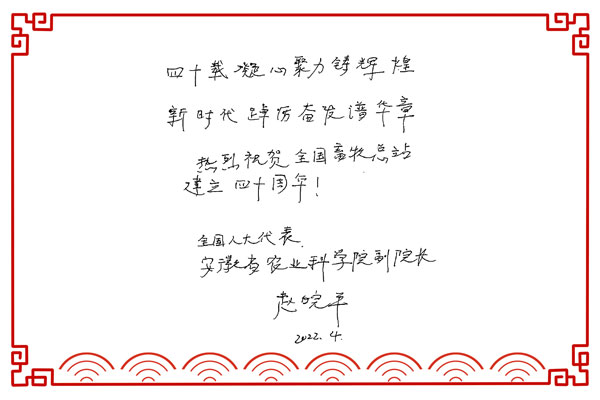 四十载凝心聚力铸辉煌
新时代踔厉奋发谱华章
热烈祝贺全国畜牧总站
建立四十周年!
全国人大代表
安徽省农业科学院副院长
赵皖平
2022.4.